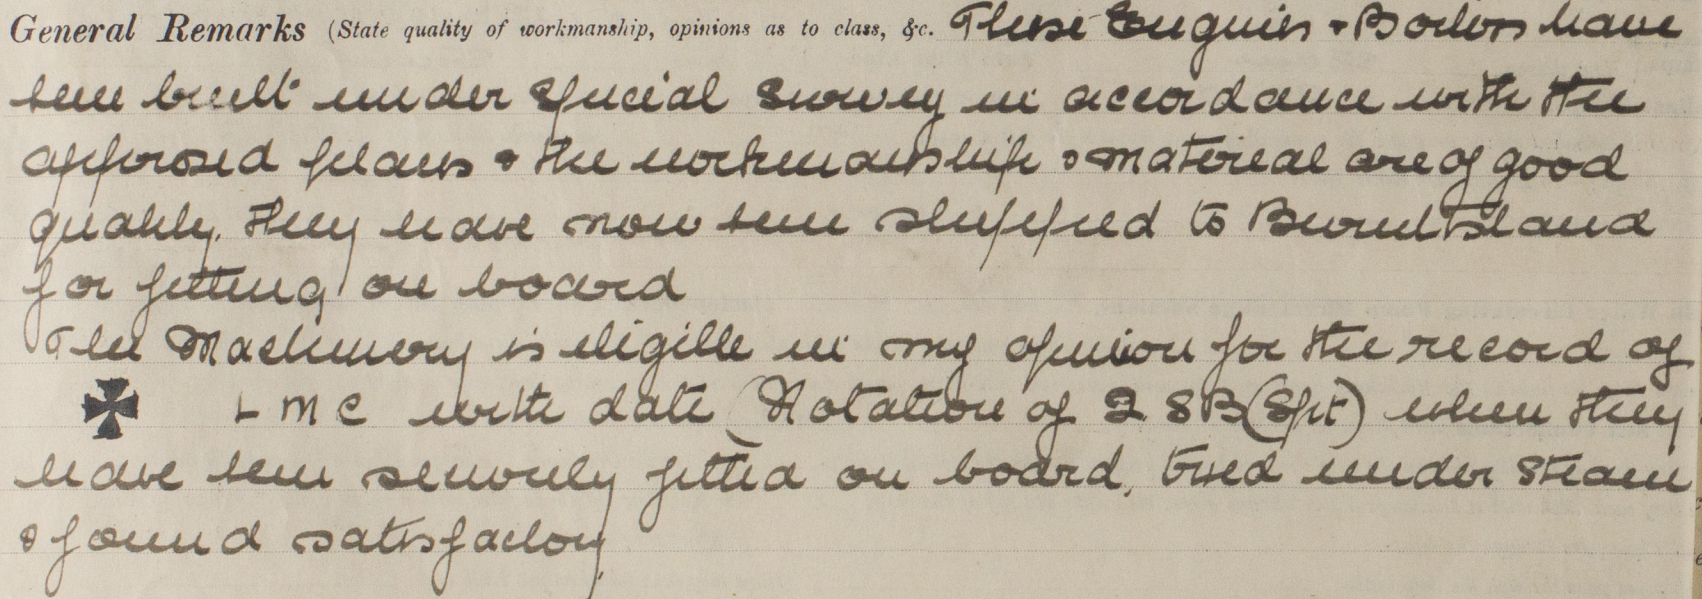 General Remarks (State quality of workmanship, opinions as to class, &c. These Engines & Boilers have
been built under special survey in accordance with the
approved plans & the workmanship & material are of good
quality. They have now been shipped to Burntisland
for fitting on board
The Machinery is eligible in my opinion for the record of
✠ LMC with date (Notation of 2 SB (Spt) when they
have been securely fitted on board, tried under steam
& found satisfactory